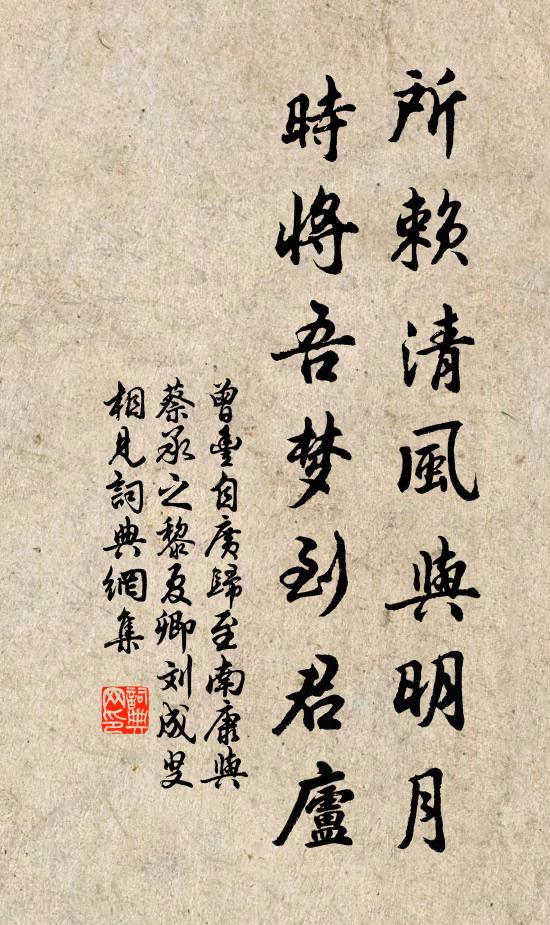 所賴清風與明月
時將吾梦到君廬
曾豐自廣歸至南康與
蔡承之黎复卿刘成叟
相見詞典網集
詞典
网印